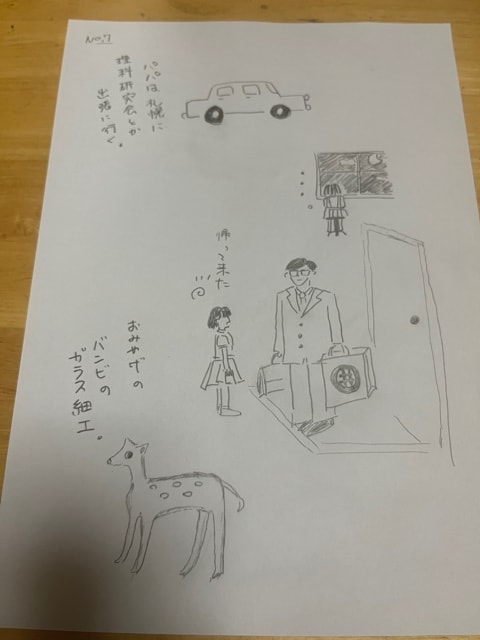 No.7
パパは札幌に
理科研究会とか
出張に行く。
帰って来た
おみやげの
バンビの
ガラス細工。